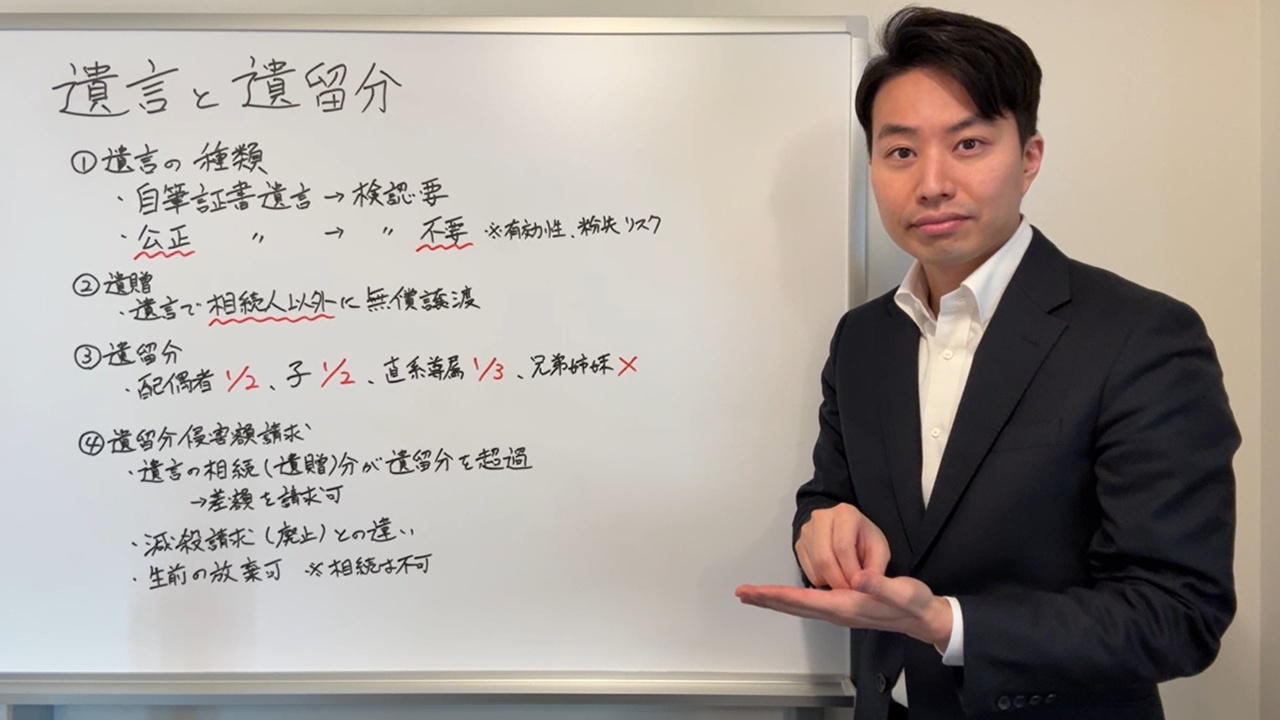 遺言と遺留分
①遺言の種類
・自筆証書遺言→検認要
・公正 〃 → 〃 不要 ※有効性、紛失リスク
②遺贈
・遺言で相続人以外に無償譲渡
③遺留分
・配偶者 1/2、子 1/2、直系尊属 1/3、兄弟姉妹 ×
④遺留分侵害額請求
・遺言の相続(遺贈)分が遺留分を超過
→差額を請求可
・減殺請求(廃止)との違い
・生前の放棄可 ※相続は不可